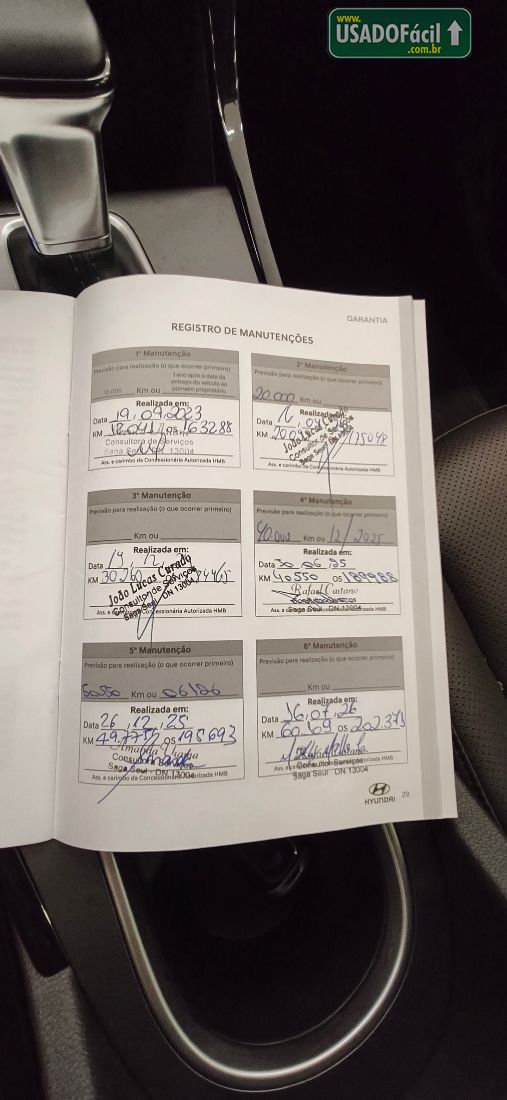 www.
USADOFácil
.com.br
GARANTIA
REGISTRO DE MANUTENÇÕES
1ª Manutenção
Previsão para realização (o que ocorrer primeiro)
10.000 Km ou 1 ano após a data da entrega do veículo ao primeiro proprietário
Realizada em:
Data 19, 09, 2023
KM 12041 OS 163288
Consultora de Serviços
Saga Seul - DN 13004
Ass. e carimbo da Concessionária Autorizada HMB
2ª Manutenção
Previsão para realização (o que ocorrer primeiro)
20.000 Km ou
Realizada em:
Data
KM
João Lucas Curado
Consultor de Serviços
Saga Seul - DN 13004
Ass. e carimbo da Concessionária Autorizada HMB
3ª Manutenção
Previsão para realização (o que ocorrer primeiro)
Km ou
Realizada em:
Data
KM 30260
João Lucas Curado
Consultor de Serviços
Saga Seul - DN 13004
Ass. e carimbo da Concessionária Autorizada HMB
4ª Manutenção
Previsão para realização (o que ocorrer primeiro)
40.000 Km ou 12/2025
Realizada em:
Data 30, 06, 25
KM 40550 OS 189988
Rafael Caetano
Saga Seul - DN 13004
5ª Manutenção
Previsão para realização (o que ocorrer primeiro)
Km ou 06/26
Realizada em:
Data 26, 12, 25
KM 49775 OS 195693
Amanda
Saga Seul - DN 13004
Ass. e carimbo da Concessionária Autorizada HMB
6ª Manutenção
Previsão para realização (o que ocorrer primeiro)
Km ou
Realizada em:
Data 16, 07, 26
KM 60109 OS 202373
Consultor Serviços
Saga Seul - DN 13004
HYUNDAI
29